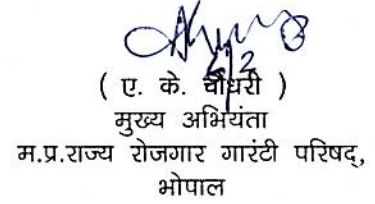 6/2
( ए. के. चौधरी )
मुख्य अभियंता
म.प्र.राज्य रोजगार गारंटी परिषद्,
भोपाल